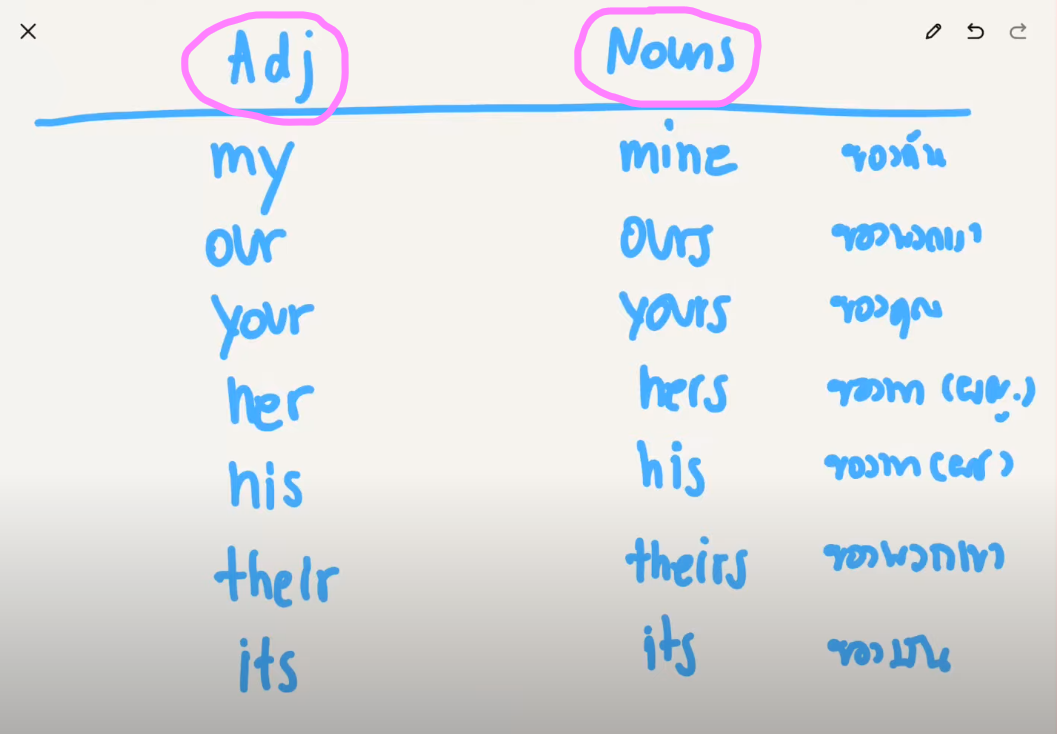 Adj Nouns
my mine ของฉัน
our ours ของพวกเรา
your yours ของคุณ
her hers ของเขา (ผญ.)
his his ของเขา (ผช)
their theirs ของพวกเขา
its its ของมัน